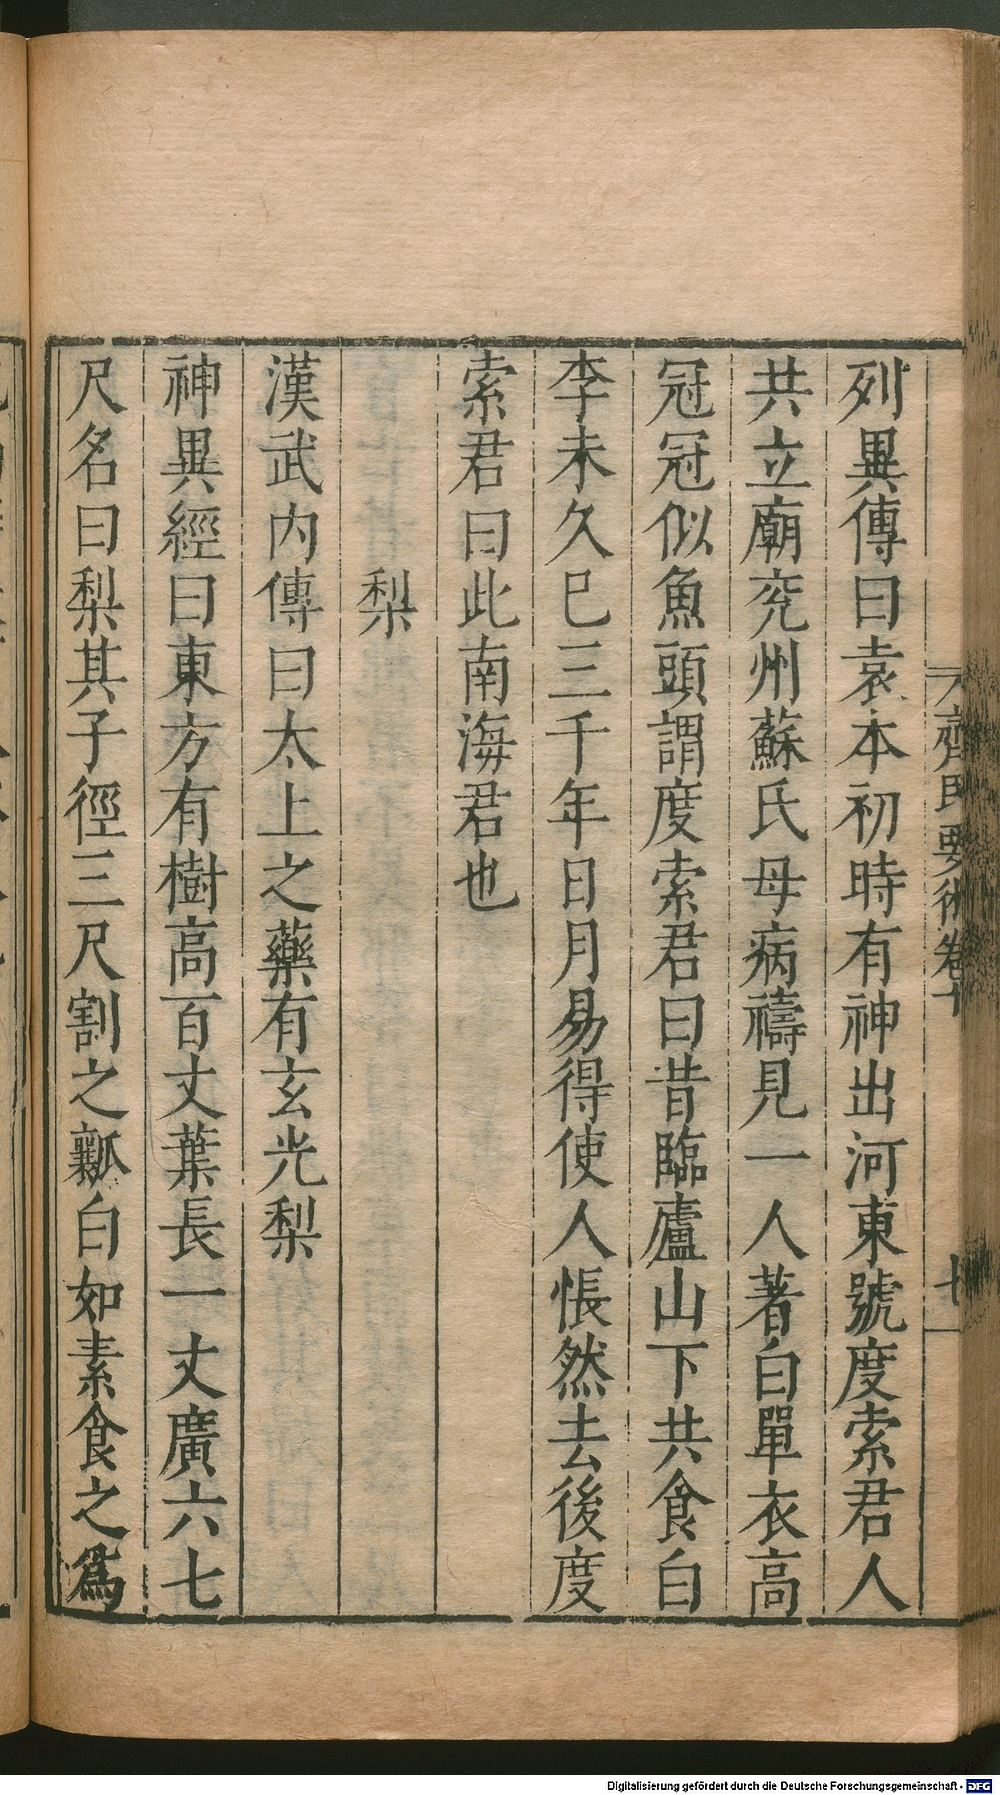 齊民要術卷十
七
列異傳曰袁本初時有神出河東號度索君人
共立廟兖州蘇氏母病禱見一人著白單衣高
冠冠似魚頭謂度索君曰昔臨廬山下共食白
李未久巳三千年日月易得使人悵然去後度
索君曰此南海君也
梨
漢武内傳曰太上之藥有玄光梨
神異經曰東方有樹高百丈葉長一丈廣六七
尺名曰梨其子徑三尺割之瓤白如素食之爲
Digitalisierung gefördert durch die Deutsche Forschungsgemeinschaft - DFG